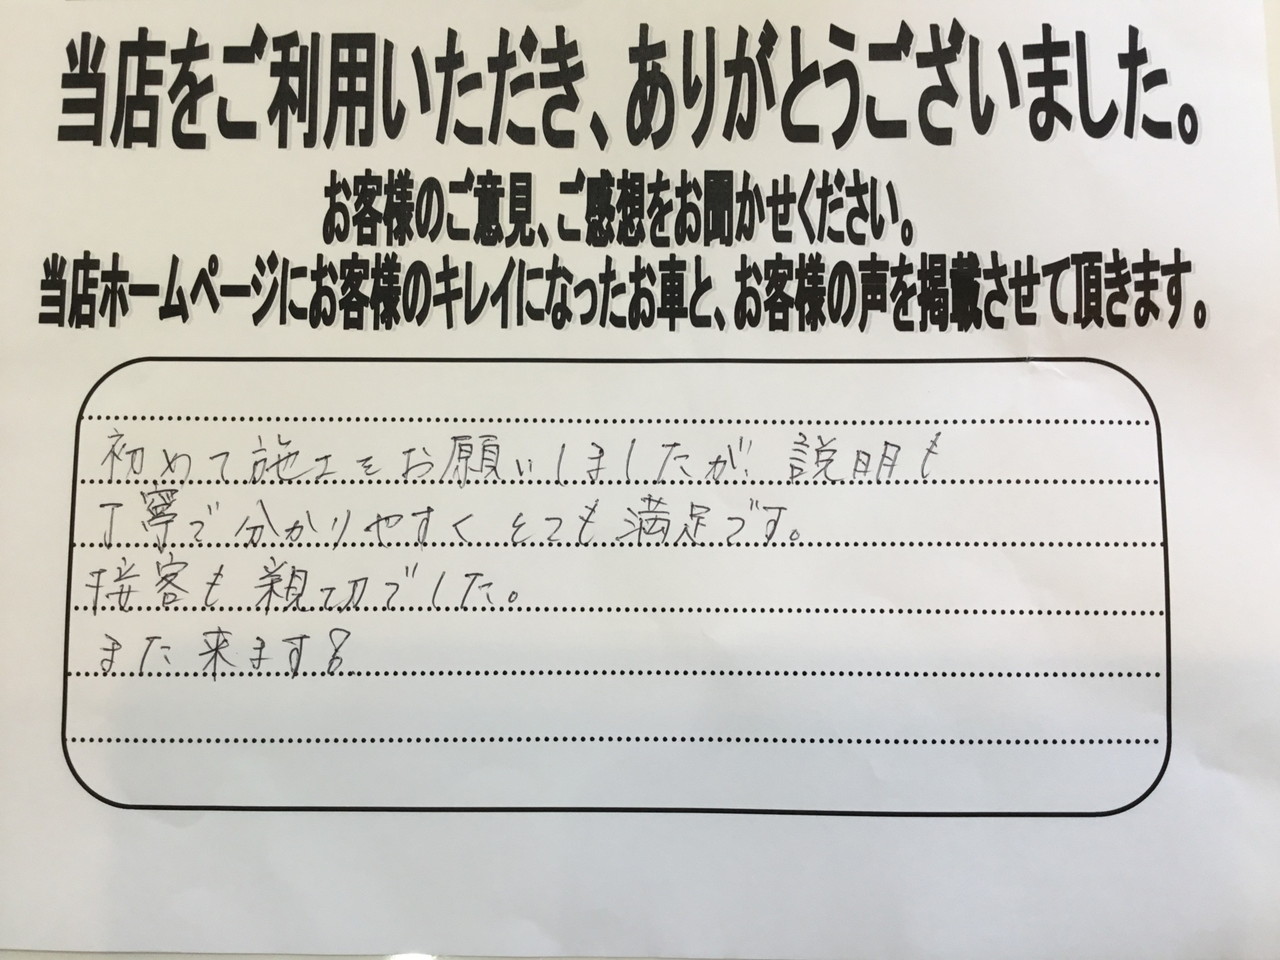 当店をご利用いただき、ありがとうございました。
お客様のご意見、ご感想をお聞かせください。
当店ホームページにお客様のキレイになったお車と、お客様の声を掲載させて頂きます。
初めて施工をお願いしましたが、説明も
丁寧で分かりやすくとても満足です。
接客も親切でした。
また来ます